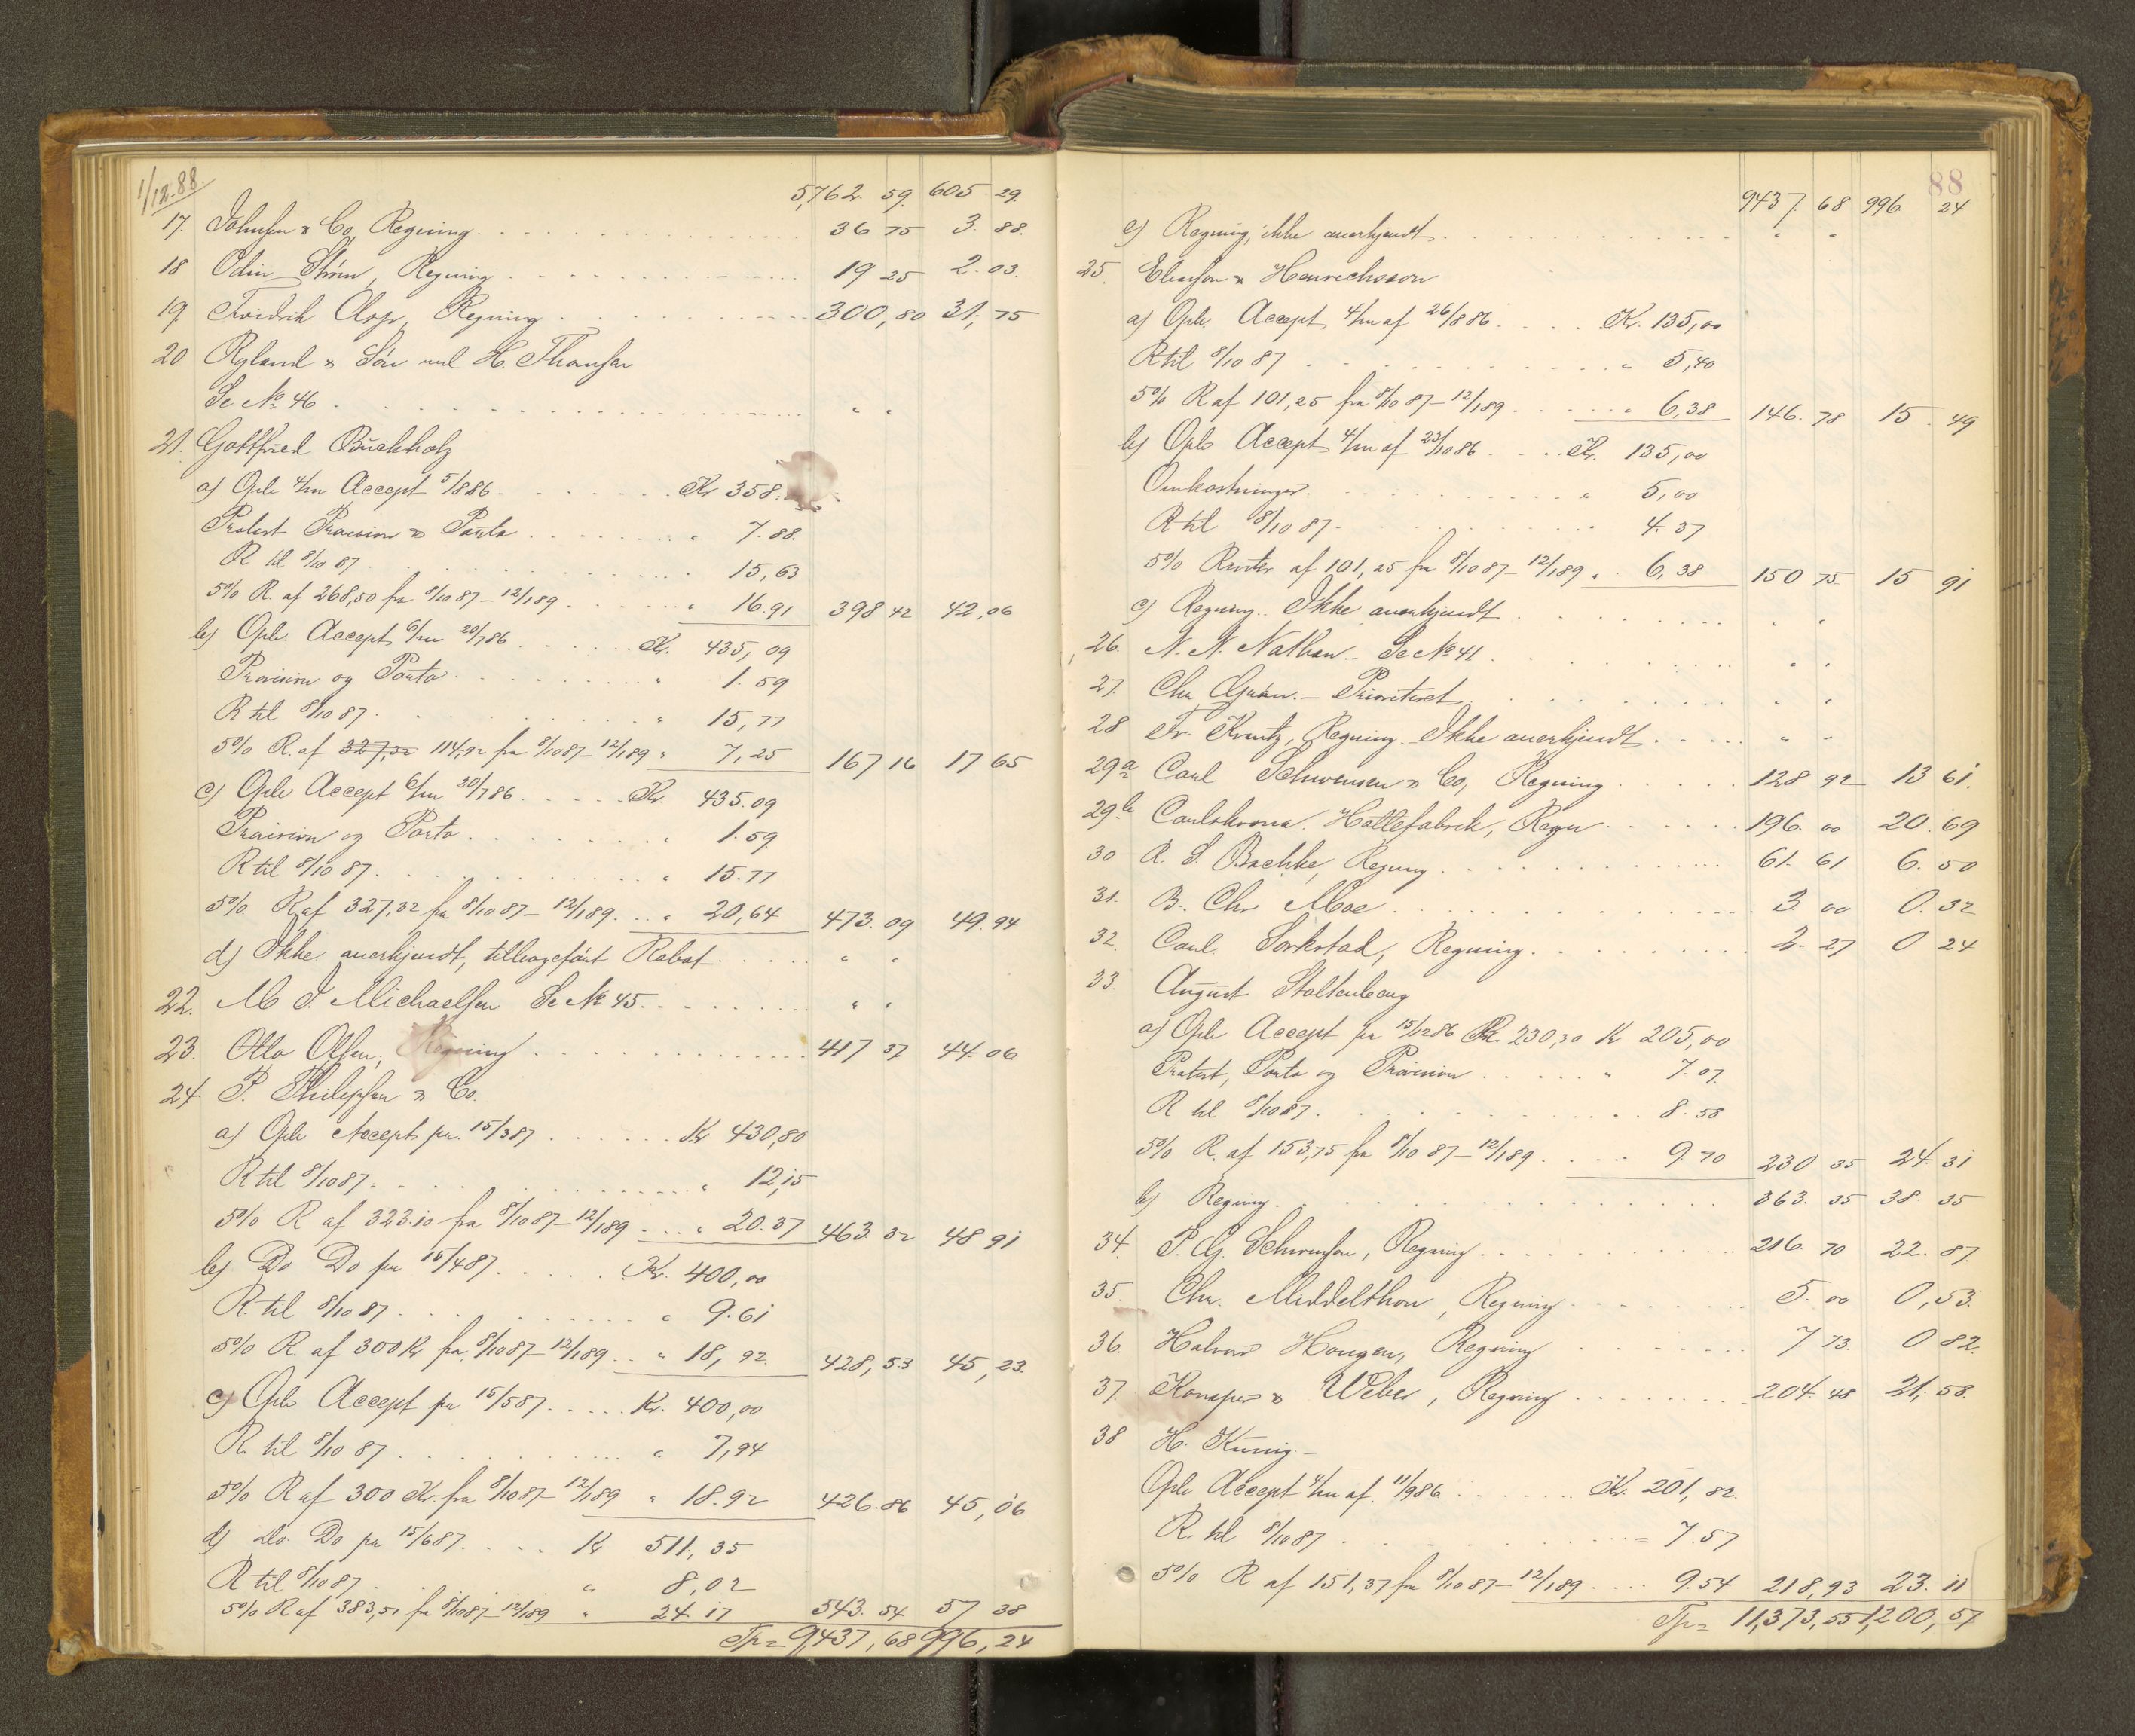 1/12.88.
5,762. 59. 605. 29.
17. Johnsen & Co, Regning 36 75 3. 88.
18 Odin Strøm, Regning 19 25 2. 03.
19. Fredrik Asp, Regning 300,80 31,75
20. Ryland & Søn ved H. Thomsen
Se No 46 " "
21. Gottfried Buckholz
a) Opb 4/m Accept 5/8 86 Kr 358.
Protest Provision & Porto " 7.88.
R til 8/10 87 15,63
5% R. af 268,50 fra 8/10 87 – 12/1 89 " 16.91 398 42 42,06
b) Opb. Accept 6/m 20/7 86 Kr. 435,09
Provision og Porto " 1.59
R til 8/10 87 " 15,77
5% R. af 327,32 114,92 fra 8/10 87 – 12/1 89 " 7,25 167 16 17 65
c) Opb Accept 6/m 20/7 86 Kr. 435.09
Provision og Porto " 1.59
R til 8/10 87 " 15.77
5% R af 327,32 fra 8/10 87 – 12/1 89 " 20,64 473.09 49.94
d) Ikke anerkjendt, tilbageført Rabat " "
22. M J. Michaelsen Se No 45 " "
23. Otto Olsen, Regning 417 37 44.06
24 P. Philipsen & Co.
a) Opb Accept pr. 15/3 87 Kr 430,80
R til 8/10 87 " 12,15
5% R af 323.10 fra 8/10 87 – 12/1 89 " 20.37 463.32 48 91
b) Do Do pr 15/4 87 Kr. 400,00
R. til 8/10 87 " 9.61
5% R. af 300 Kr fra 8/10 87 – 12/1 89 " 18,92 428,53 45,23.
c) Opb Accept pr 15/5 87 Kr. 400,00
R. til 8/10 87 " 7,94
5% R af 300 Kr. fra 8/10 87 – 12/1 89 " 18.92 426.86 45,06
d) Do. Do pr 15/6 87 Kr 511,35
R til 8/10 87 " 8,02
5% R af 383,51 fra 8/10 87 – 12/1 89 " 24 17 543.54 57 38
Tp = 9,437,68 996,24
88
9437. 68 996 24
e) Regning, ikke anerkjendt " "
25. Eliasson & Henrichsson
a) Opb. Accept 4/m af 26/8 86 Kr. 135,00
R til 8/10 87 " 5,40
5% R af 101,25 fra 8/10 87 – 12/1 89 " 6,38 146.78 15.49
b) Opb Accept 4/m af 23/10 86 Kr. 135,00
Omkostninger " 5,00
R til 8/10 87 4.37
5% Renter af 101,25 fra 8/10 87 – 12/1 89 " 6,38 150 75 15 91
c) Regning. Ikke anerkjendt " "
26. N. N. Nathan – Se No 41 " "
27. Chr – Prioriteret " "
28 Fr. Krentz, Regning. Ikke anerkjendt " "
29a Carl Schwensen & Co, Regning 128 92 13 61.
29b Carlskrona Hattefabrik, Regn 196.00 20.69
30 A. S. Bachke, Regning 61.61 6.50
31. B. Chr Moe 3 00 0.32
32. Carl Sorkstad, Regning 2.27 0 24
33. August Stoltenberg
a) Opb Accept pr 15/12 86 Kr. 230,30 Kr 205,00
Protest, Porto og Provision " 7.07.
R til 8/10 87 8.58
5% R. af 153,75 fra 8/10 87 – 12/1 89 9.70 230 35 24.31
b) Regning 363.35 38.35
34. P. G. Schwensen, Regning 216.70 22.87.
35. Chr. Middelthon, Regning 5.00 0,53.
36. Halvor Haugen, Regning 7.73. 0 82.
37. & Weber, Regning 204.48 21.58.
38 H. König. –
Opb Accept 4/m af 11/9 86 Kr. 201,82.
R. til 8/10 87 = 7.57
5% R af 151,37 fra 8/10 87 – 12/1 89 9.54 218,93 23.11
Tp = 11,373,55 1,200,57